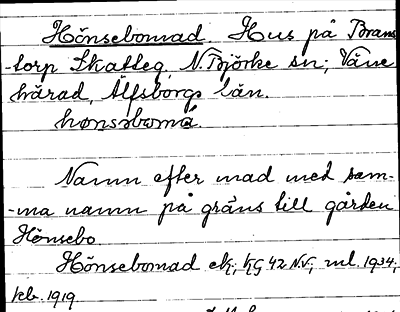 Hönsebomad. Hus på Brans
-torp Skatteg, N. Björke sn; Väne
härad, Älfsborgs län.
hønsəbomá.
Namn efter mad med sam-
-ma namn på gräns till gården
Hönsebo.
Hönsebomad ek; KG 42 N.V.; ml. 1934;
kb. 1919